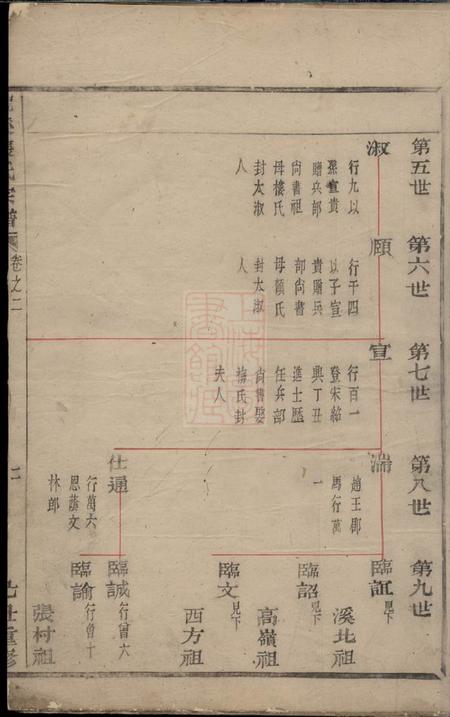 第五世
第六世
第七世
第八世
第九世
淑
行九以
孫宣貴
贈兵部
尚書祖
母樓氏
封太淑
人
頤
行千四
以子宣
貴贈兵
部尚書
母顏氏
封太淑
人
宣
行百一
登宋紹
興丁丑
進士歷
任兵部
尚書娶
梅氏封
夫人
湍
趙王郡
馬行萬
一
仕通
行萬六
恩蔭文
林郎
臨証 見下
溪北祖
臨詔 見下
高嶺祖
臨文 見下
西方祖
臨誠 行曾六
臨諭 行曾十
張村祖
氏宗譜
卷之二
二
重修
上海圖書館藏